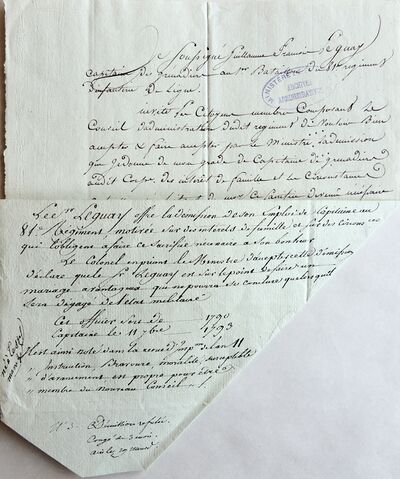 Soussigné Guillaume Francois Lequay
capitaine de grenadier au 1er Bataillon du 81e regiment
D'infanterie de Ligne.
invite Les Citoyens membres Composant Le
Conseil d'administration dudit regiment de Vouloir Bien
accepter & faire accepter par le Ministre l'admission
que je donne de mon grade de Capitaine de grenadier
audit Corps. des interet de famille et les Circonstance
MINISTÈRE
ARCHIVES
ADMINISTRATIVES
Le Sr. Lequay offre la démission de son Emploi de Capitaine au
81e Régiment, motivée sur des interets de famille et sur des Circonces
qui l'obligent a faire ce Sacrifice necessaire a Son bonheur
Le Colonel en priant le Ministre d'accepter cette démission
déclare que le Sr Lequay est sur le point de faire un
mariage avantageux qui ne pourra se conclure qu'alors qu'il
Sera dégagé de l'état militaire
Cet officier Sert de 1790
Capitaine le 11 7bre 1793
Il est ainsi noté dans la revue d'Insp.on de l'an 11
" Instruction, Bravoure, moralité, susceptible
" d'avancement et propre pour être
" membre du nouveau Conseil "
N.3. Démission refusée
Congé de 3 mois